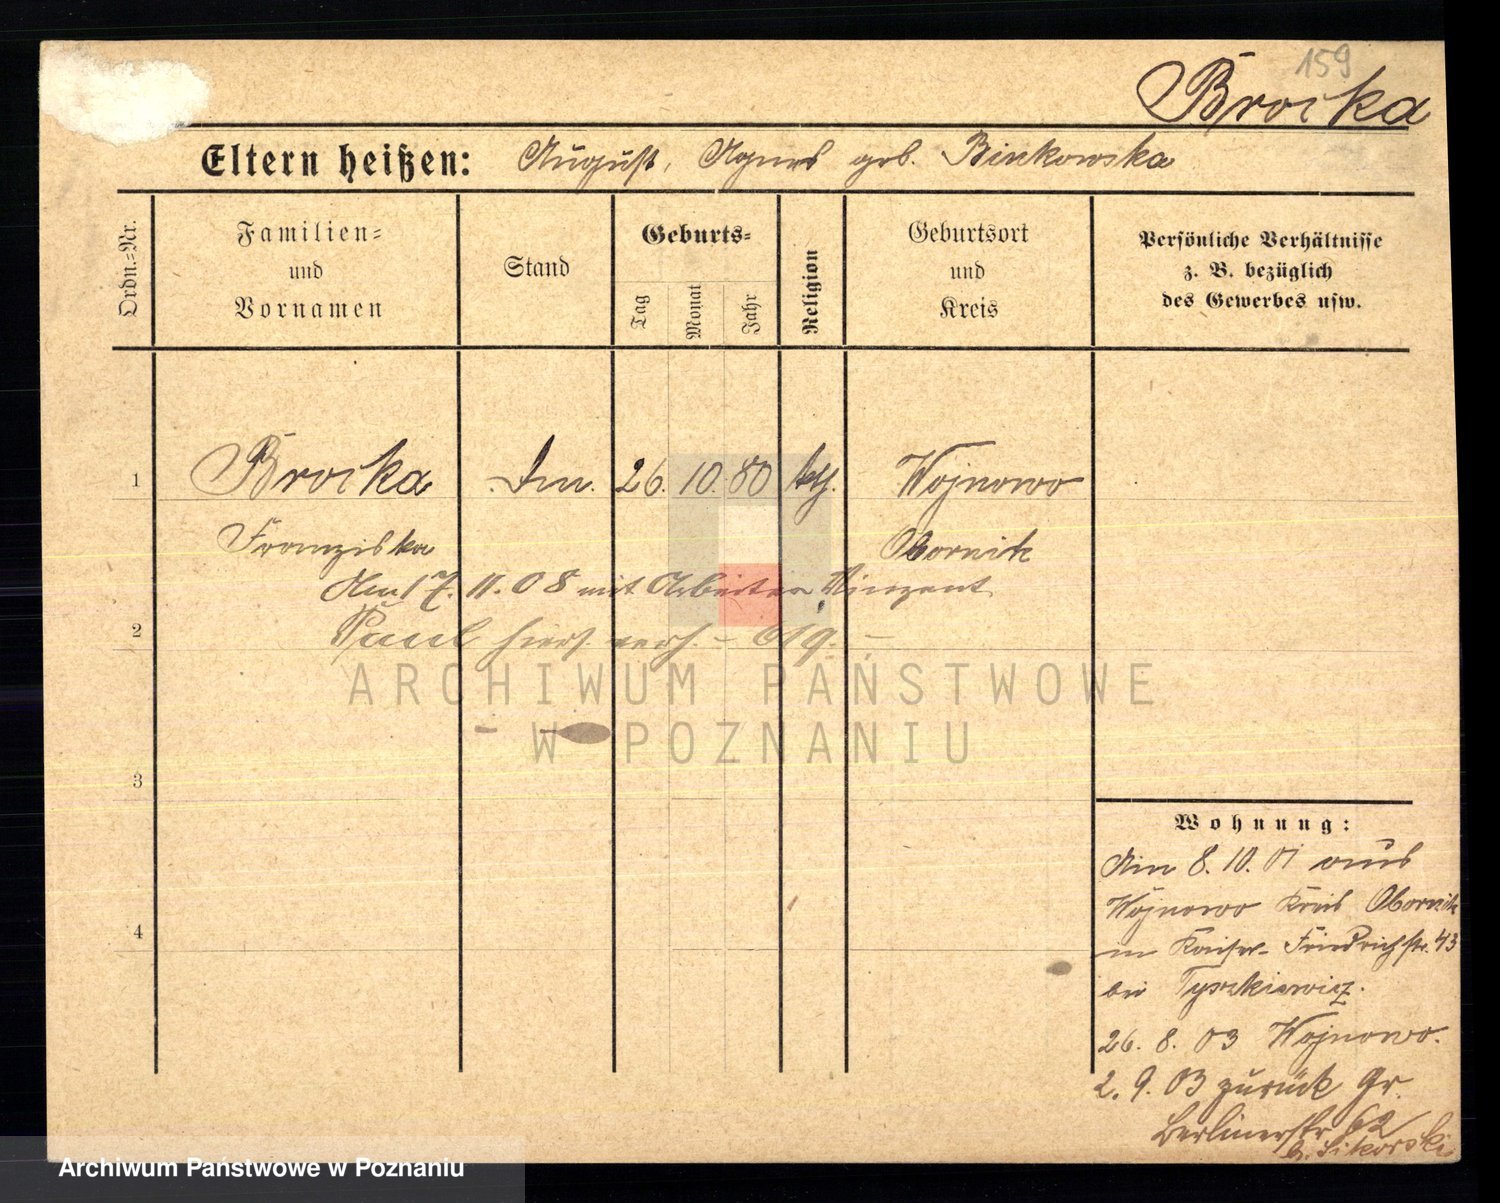 159
Brocka
Eltern heißen: August, Agnes geb. Binkowska
Ordn.-Nr.
Familien-
und
Vornamen
Stand
Geburts-
Tag
Monat
Jahr
Religion
Geburtsort
und
Kreis
Persönliche Verhältnisse
z. B. bezüglich
des Gewerbes usw.
1 Brocka 26. 10. 80 kth. Wojnowo
Franziska Obornik
Am 17. 11. 08 mit Arbeiter Vinzent
2
Paul hiers. verh.
3
4
Wohnung:
Am 8. 10. 01 aus
Wojnowo Kreis Obornik
in Kaiser-Friedrichstr. 43
bei Tyszkiewicz.
26. 8. 03 Wojnowo.
2. 9. 03 zurück Gr.
Berlinerstr 62
b. Sikorski
ARCHIWUM PAŃSTWOWE
W POZNANIU
Archiwum Państwowe w Poznaniu